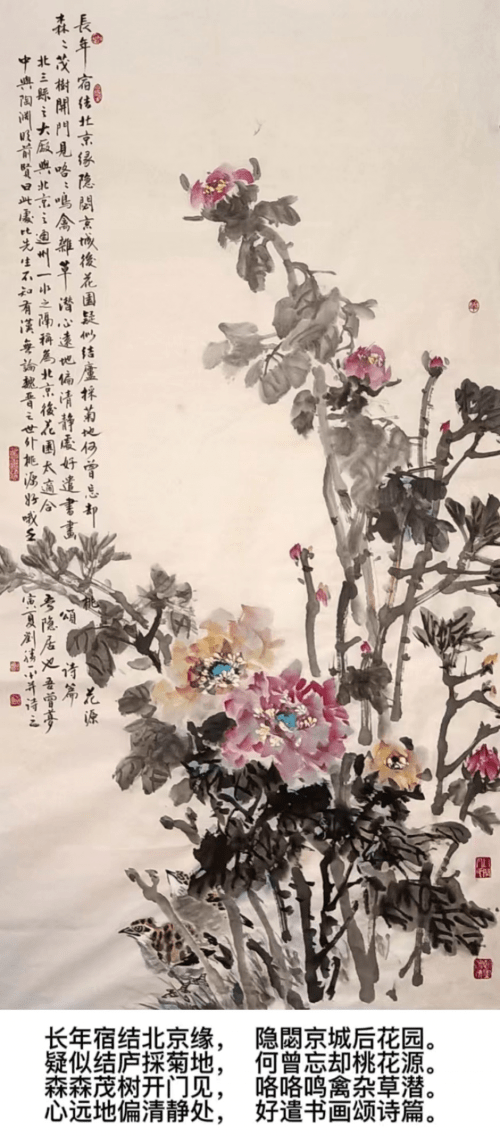 長年宿结北京缘隐閟京城後花園疑似结廬採菊地何曾忘却桃花源
森々茂樹開門見咯々鳴禽雜草潜心遠地偏清静處好遣書畫頌诗篇
北三縣之大厰與北京之通州一水之隔稱為北京後花園太適合者隐居也吾曾夢
中與陶渊明前賢曰此處比先生不知有漢無論魏晋之世外桃源好哦壬寅夏劉勝并诗之
长年宿结北京缘， 隐閟京城后花园。
疑似结庐採菊地， 何曾忘却桃花源。
森森茂树开门见， 咯咯鸣禽杂草潜。
心远地偏清静处， 好遣书画颂诗篇。